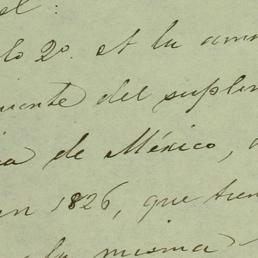 el :
lo 2º. A la
uente del suplem
ia de México,
en 1826, que tien
la misma